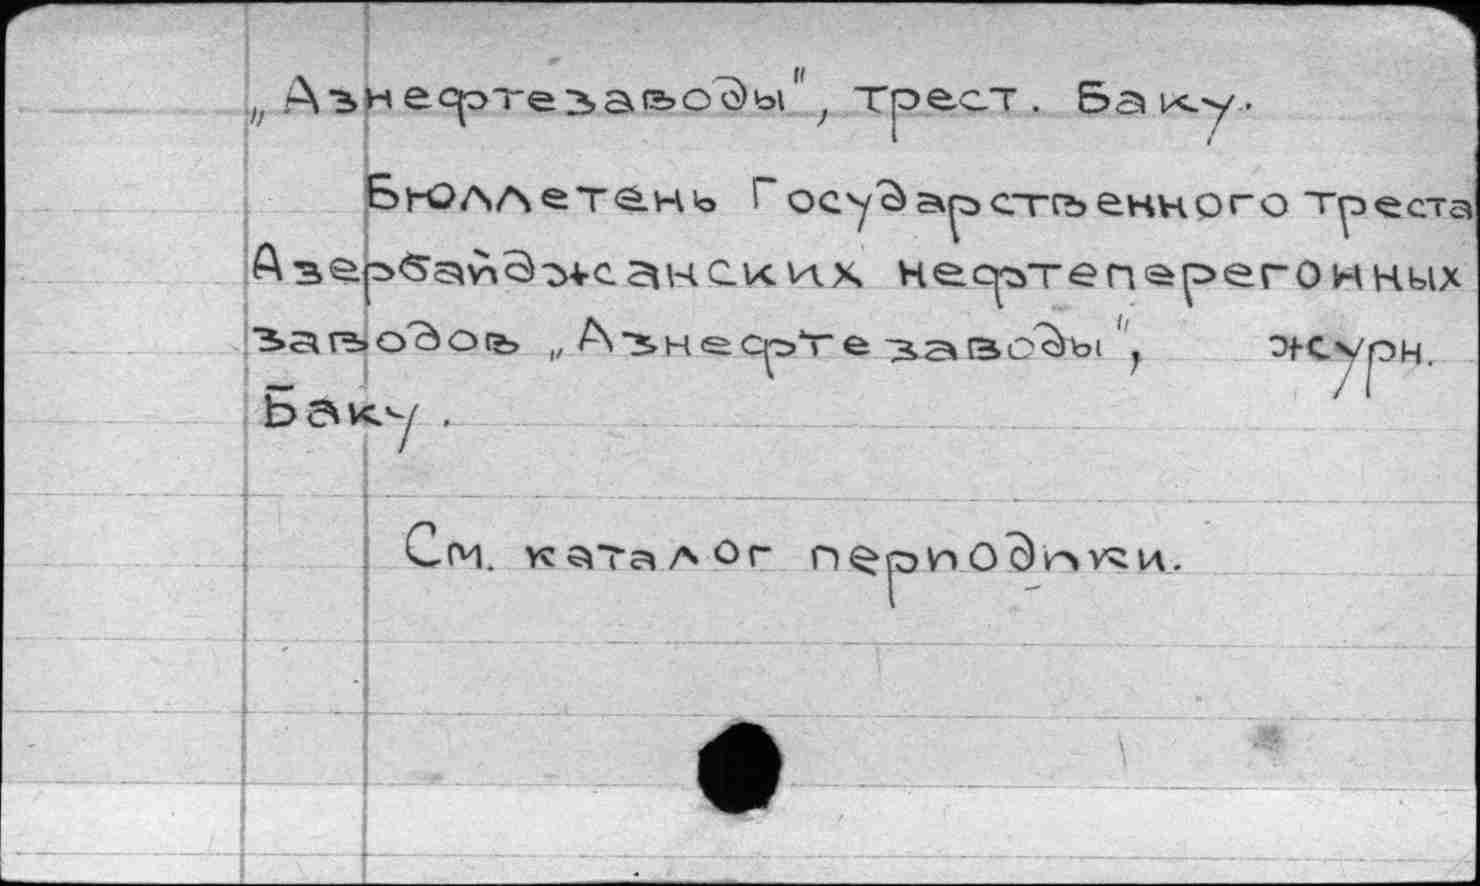 „Азнефтезаводы", трест. Баку.
Бюллетень Государственного треста
Азербайджанских нефтеперегонных
заводов „Азнефтезаводы", журн.
Баку.
См. каталог периодики.